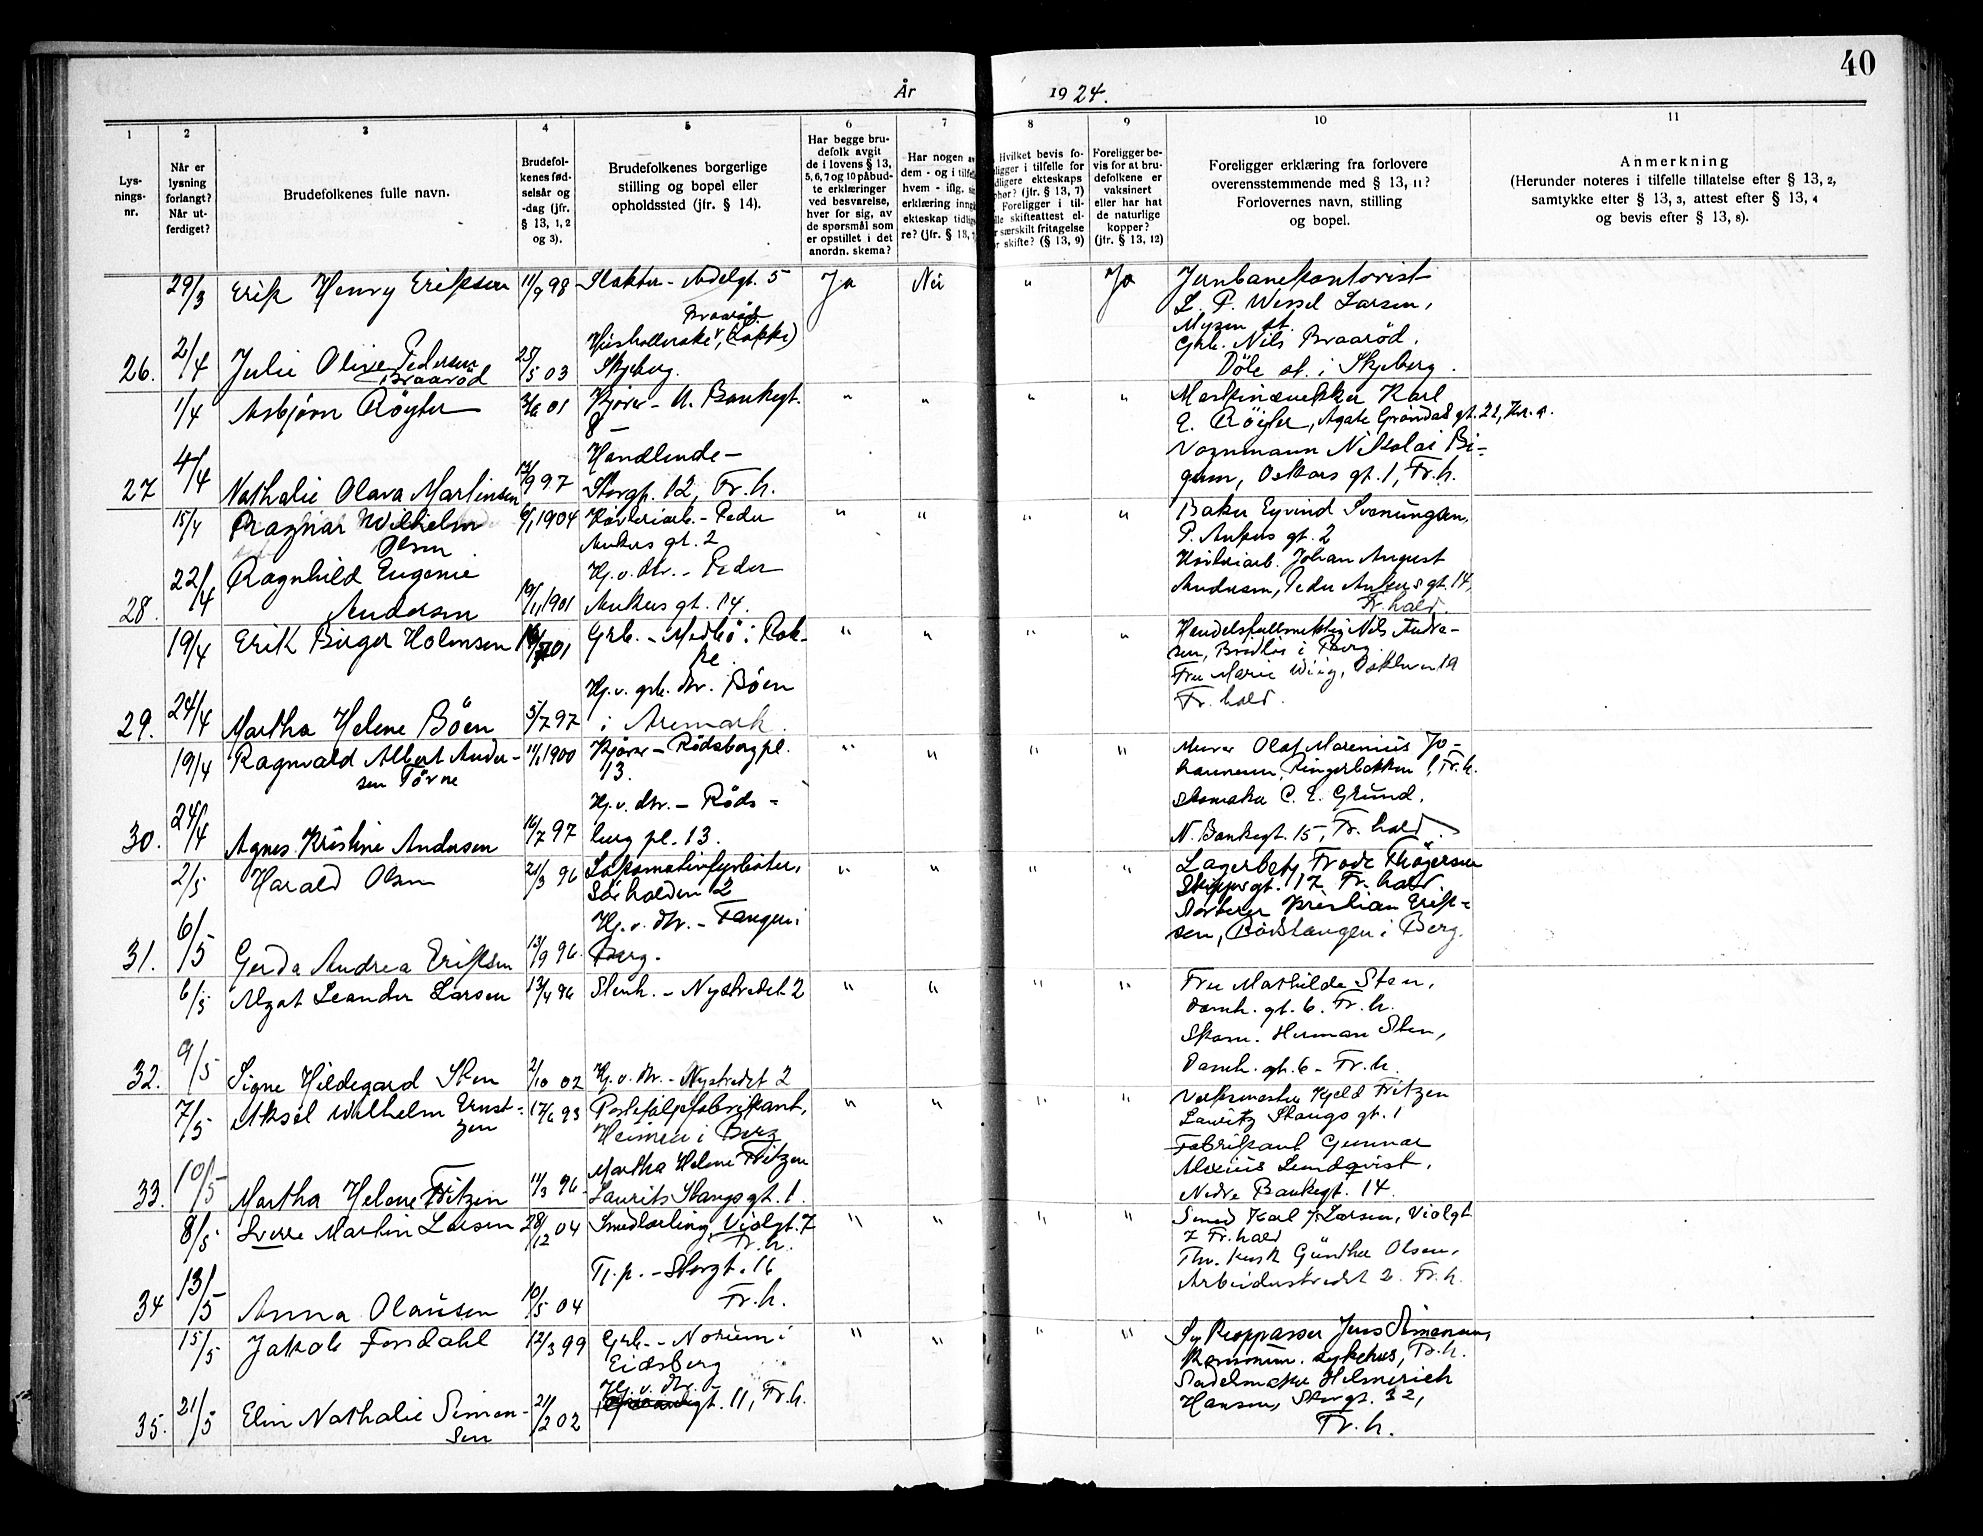 40
År 1924.
1 2 3 4 5 6 7 8 9 10 11
Lys-
nings-
nr.
Når er
lysning
forlangt?
Når ut-
ferdiget?
Brudefolkenes fulle navn.
Brudefol-
kenes fød-
selsår og
-dag (jfr.
§ 13, 1, 2
og 3).
Brudefolkenes borgerlige
stilling og bopel eller
opholdssted (jfr. § 14).
Har begge bru-
defolk avgit
de i lovens § 13,
5, 6, 7 og 10 påbud-
te erklæringer
ved besvarelse,
hver for sig, av
de spørsmål som
er opstillet i det
anordn. skema?
Har nogen
dem - og i
hvem - iflg.
erklæring
ekteskap
re? (jfr. § 13,
Hvilket bevis fo-
ligger i tilfelle for
ligere ekteskaps
(jfr. § 13, 7)
Foreligger i til-
skifteattest el-
særskilt fritagelse
skifte? (§ 13, 9)
Foreligger be-
vis for at bru-
defolkene er
vaksinert
eller har hat
de naturlige
kopper?
(jfr. § 13, 12)
Foreligger erklæring fra forlovere
overensstemmende med § 13, 11?
Forlovernes navn, stilling
og bopel.
Anmerkning
(Herunder noteres i tilfelle tillatelse efter § 13, 2,
samtykke efter § 13, 3, attest efter § 13, 4
og bevis efter § 13, 8).
29/3 Erik Henry Eriksen 11/9 98 Slakter - Adelgt. 5 Ja Nei " Ja Jernbanekontorist
L. P. Wessel Larsen,
Mysen st.
26. 2/4 Julie Olive Pedersen
Braarød 25/5 03 Braarød
Husholderske, (Lokke)
Skjeberg. Grb. Nils Braarød.
Døle st. i Skjeberg.
1/4 Asbjørn Røyter 01 Kjører - N. Bankegt.
8 - " " " " Maskinsnekker Karl
E. Røyter, Agate Grøndals gt. 22, Kr.a.
27 4/4 Nathalie Olava Martinsen 13/9 97 Handlende -
Storgt. 12, Fr.h. Vognmann Nikolai Bi-
gum, Oskars gt. 1, Fr.h.
15/4 Ragnar Wilhelm
Olsen 6/1 1904 - Peder
Ankers gt. 2 " " " " Baker Eyvind Svenungsen,
P. Ankers gt. 2
28. 22/4 Ragnhild Eugenie
Andersen 19/11 1901 Hj.v. dtr. - Peder
Ankers gt. 14. Johan August
Andersen, Peder Ankers gt. 14,
Fr.hald.
19/4 Erik Birger Holmsen 01 Grb. - Medbø i Rok-
ke. " " " " Handelsfullmektig Nils Andre-
sen, i Berg.
29. 24/4 Martha Helene Bøen 5/7 97 Hj.v. grb. dtr. Bøen
i Aremark. Fru Marie Wiig, 19
Fr. hald.
19/4 Ragnvald Albert Ander-
sen Tørne 11/1 1900 Kjører - Rødsberg pl.
13. " " " " Murer Olaf Marenius Jo-
hannesen, Ringerbakken 1, Fr.h.
30. 24/4 Agnes Kristine Andersen 16/7 97 Hj.v. dtr. - Røds-
berg pl. 13. Skomaker C. E. Grund,
N. Bankegt. 15, Fr. hald.
2/5 Harald Olsen 21/3 96 Lokomotivfyrbøter,
Sørhalden 2 " " " " Lagerbetj. Frode Thøgersen
Skippergt. 17 Fr. hald
31. 6/5 Gerda Andrea Eriksen 13/9 96 Hj.v. dtr. - Tangen i
Berg. Kristian Erik-
sen, Rødstangen i Berg.
6/5 Algot Leander Larsen 13/4 96 Stenh. - Nystredet 2 " " " " Fru Mathilde Sten,
Damh. gt. 6. Fr.h.
32. 9/5 Signe Hildegard Sten 2/10 02 Hj.v. dtr. - Nystredet 2 Skom. Herman Sten,
Damh. gt. 6 - Fr.h.
7/5 Aksel Wilhelm Ernst-
zen 17/6 93 Portefølgefabrikant,
Heimen i Berg " " " " Verksmester Kjeld Fritzen
Lauritz Stangs gt. 1
33. 10/5 Martha Helene Fritzen 11/3 96 Martha Helene Fritzen
Laurits Stangs gt. 1. Fabrikant Gunnar
Alexius Lundqvist,
Nedre Bankegt. 14.
8/5 Sverre Martin Larsen 28/12 04 Smedlærling, Violgt. 7
Fr.h. " " " " Smed Karl J. Larsen, Violgt
7 Fr.hald
34 13/5 Anna Olausen 10/5 04 Tj.p. - Storgt. 16
Fr.h. Günther Olsen,
Arbeiderstredet 2. Fr.h.
15/5 Jakob Forsdahl 12/3 99 Grb. - Norum i
Eidsberg " " " " Jens Simensen,
sykehus, Fr.h.
35. 21/5 Elin Nathalie Simen-
sen 21/2 02 Hj.v. dtr.
gt. 11, Fr.h. Sadelmaker Helmerich
Hansen, Storgt. 32,
Fr.h.